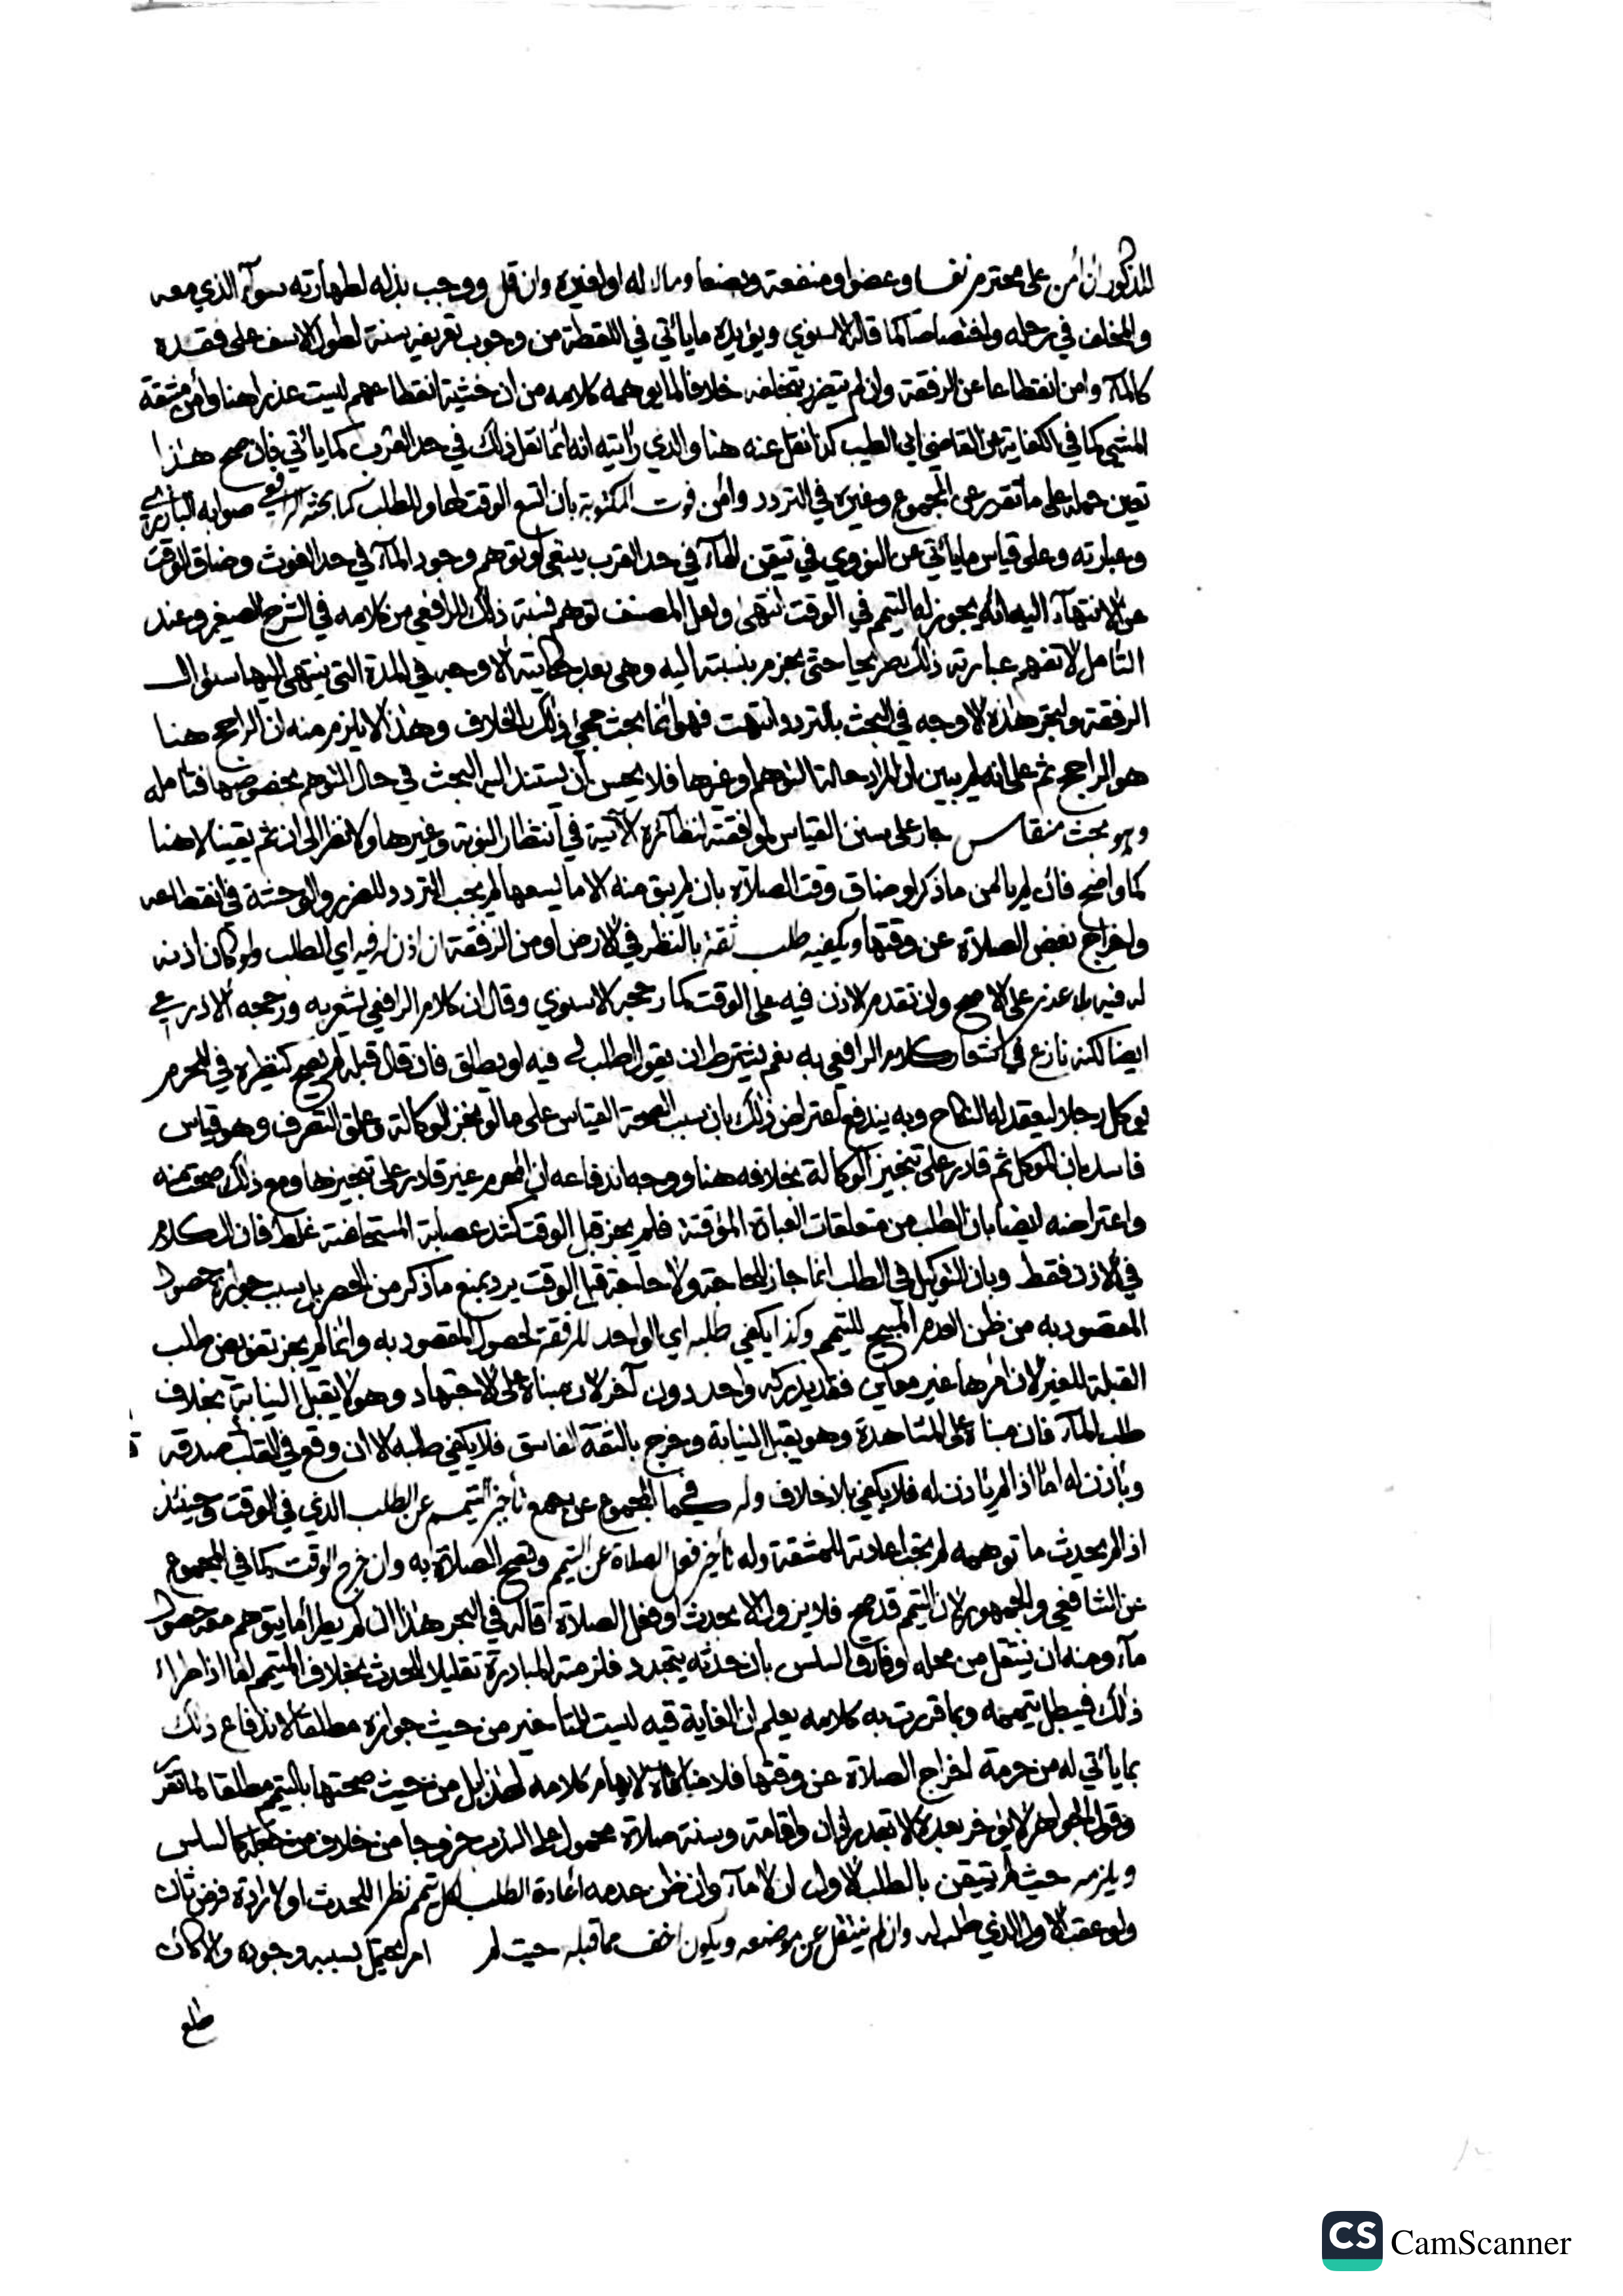 المذكور ان أمن على محترم نفسا وعضوا ومنفعة وبضعا ومالا له او لغيره وان قل ووجب بذله لطهارته سوآء الذي معه
والمخلف في رحله واختصاصا كما قاله الاسنوي ويؤيده ما يأتي في اللقطة من وجوب تعريفه سنة لطول الاسف على فقده
كالمآء وامن انقطاعا عن الرفقة وان لم يتضرر بتخلفه خلافا لما يوهمه كلامه من ان خشية انقطاعهم ليست عذرا هنا وأمن مشقة
المشي كما في الكفاية عن القاضي ابي الطيب كذا نقل عنه هنا والذي رأيته انه انما نقل ذلك في حد القرب كما يأتي فان صح هذا
تعين حمله على ما تقرر عن المجموع وغيره في التردد وأمن فوت المكتوبة بأن اتسع الوقت لها وللطلب كما بحثه الرافعي صوابه البارزي
وعبارته وعلى قياس ما يأتي عن النووي في تيقن المآء في حد القرب ينبغي لو توهم وجود المآء في حد الغوث وضاق الوقت
عن الانتهآء اليه انه يجوز له التيمم في الوقت انتهى ولعل المصنف توهم نسبة ذلك للرافعي من كلامه في الشرح الصغير وعند
التأمل لا تفهم عبارته ذلك صريحا حتى يجزم بنسبته اليه وهي بعد حكايته الاوجه في المدة التي ينتهي اليها سؤال
الرفقة وليجر هذه الاوجه في البحث بالتردد انتهت فهو انما بحث مجئ ذلك الخلاف وهذا لا يلزم منه ان الراجح هنا
هو الراجح ثم على انه لم يبين ان المراد حالة التوهم او غيرها فلا يحسن ان يستند اليه البحث في حال التوهم بخصوصها فتأمله
وهو بحث منقاس جار على سنن القياس لموافقته لنظآئره الآتية في انتظار النوبة وغيرها ولا نظر الى ان ثم يقينا لا هنا
كما واضح فان لم يأمن ما ذكر او ضاق وقت الصلاة بان لم يبق منه الا ما يسعها لم يجب التردد للضرر والوحشة في انقطاعه
واخراج بعض الصلاة عن وقتها ويكفيه طلب ثقة بالنظر في الارض او من الرفقة ان اذن له فيه اي الطلب ولو كان اذنه
له فيه بلا عذر على الاصح وان تقدم الاذن فيه على الوقت كما رجحه الاسنوي وقال ان كلام الرافعي يشعر به ورجحه الاذرعي
ايضا لكنه نازع في اشعار كلام الرافعي به نعم يشترط ان يقول اطلب لي فيه او يطلق فان قال قبله لم يصح كنظيره في المحرم
يوكل رجلا ليعقد له النكاح وبه يندفع اعتراض ذلك بان سبب الصحة القياس على ما لو نجز الوكالة وعلق التصرف وهو قياس
فاسد بان الموكل ثم قادر على تنجيز الوكالة بخلافه هنا ووجه اندفاعه ان المحرم غير قادر على تنجيزها ومع ذلك صحت منه
واعتراضه ايضا بان الطلب من متعلقات العبادة المؤقتة فلم يجز قبل الوقت كشد عصابة المستحاضة غلط فان الكلام
في الاذن فقط وبان التوكيل في الطلب انما جاز للحاجة ولا حاجة قبل الوقت يرد بمنع ما ذكر من الحصر بل سبب جوازه حصول
المقصود به من ظن العدم المبيح للتيمم وكذا يكفي طلبه اي الواحد للرفقة لحصول المقصود به وانما لم يجز تفويض طلب
القبلة للغير لان أمرها غير معاين فقد يدركه واحد دون آخر لان مبناه على الاجتهاد وهو لا يقبل النيابة بخلاف
طلب المآء فان مبناه على المشاهدة وهو يقبل النيابة وخرج بالثقة الفاسق فلا يكفي طلبه الا ان وقع في القلب صدقه
وبأذن له اما اذا لم يأذن له فلا يكفي بلا خلاف وله كما في المجموع عن جمع تأخير التيمم عن الطلب الذي في الوقت وحينئذ
اذا لم يحدث ما توهمه لم يجب اعادته للمشقة وله تأخير فعل الصلاة عن التيمم وتصح الصلاة به وان خرج الوقت كما في المجموع
عن الشافعي والجمهور لان التيمم قد صح فلا يزول الا بحدث او فعل الصلاة قاله في البحر هذا ان لم يطرأ ما يتوهم معه حصول
مآء ومنه ان ينتقل من محله وفارق السلس بان حدثه يتجدد فلزمته المبادرة تقليلا للحدث بخلاف المتيمم اما اذا طرأ
ذلك فيبطل تيممه وبما قررت به كلامه يعلم ان الغاية فيه ليست للتأخير من حيث جوازه مطلقا لاندفاع ذلك
بما يأتي له من حرمة اخراج الصلاة عن وقتها فلا منافاة لايهام كلامه لهذا بل من حيث صحتها بالتيمم مطلقا لما تقرر
وقول الجواهر لا يؤخر بعده الا بقدر اذان واقامة وسنة صلاة محمول على الندب خروجا من خلاف من جعله كالسلس
ويلزمه حيث لم يتيقن بالطلب الاول ان لا مآء وان ظن عدمه اعادة الطلب لكل تيمم نظرا للحدث او لارادة فرض ثان
ولو عقب الاول الذي طلب له وان لم ينتقل عن موضعه ويكون اخف مما قبله حيث لم امر يحتمل بسببه وجوده والا كان
طلع
CS CamScanner